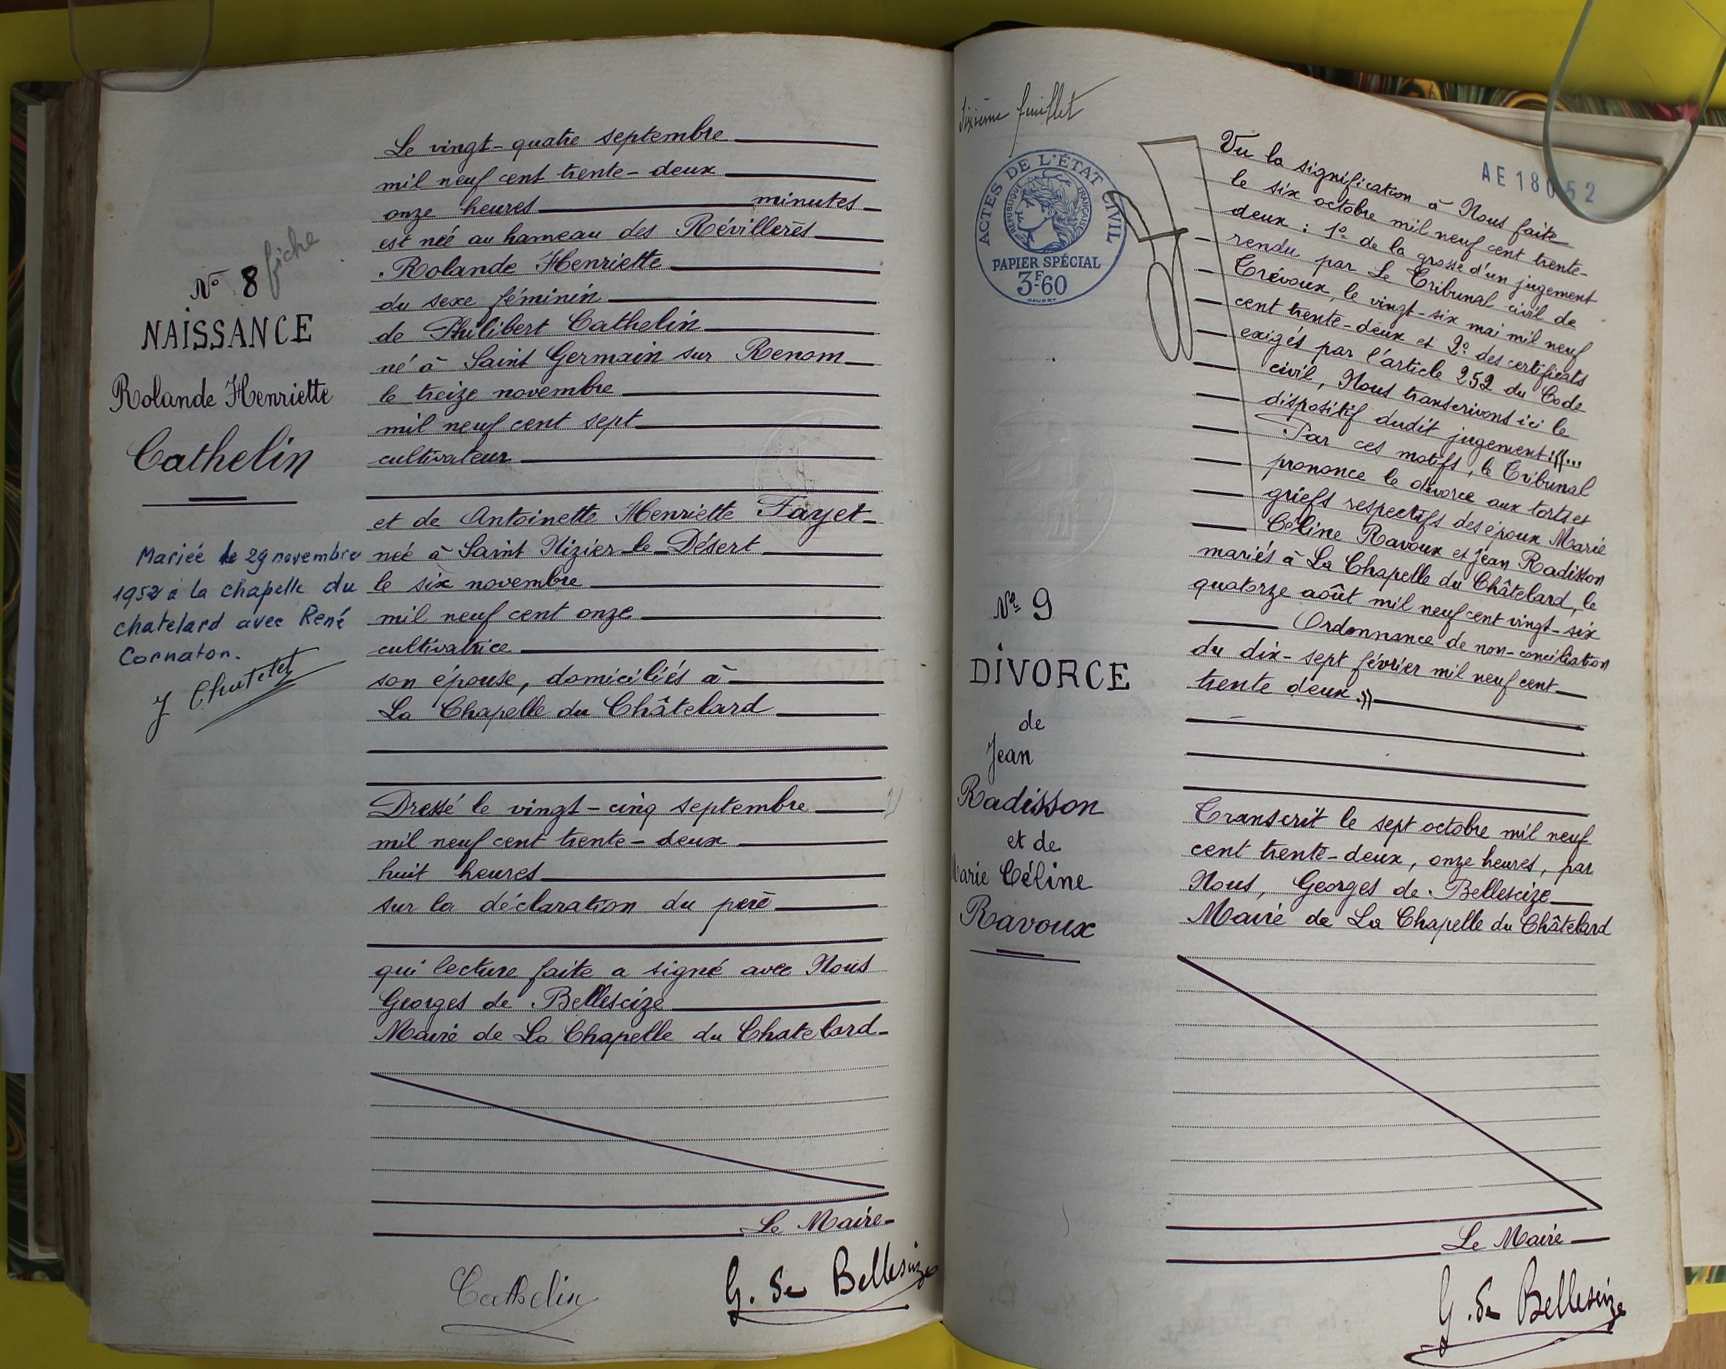 N° 8 fiche
NAISSANCE
Rolande Henriette
Cathelin
Mariée le 29 novembre
1952 à la chapelle du
chatelard avec René
Cornaton.
J Chatelet
Le vingt-quatre septembre
mil neuf cent trente-deux
onze heures minutes
est née au hameau des Révillères
Rolande Henriette
du sexe féminin
de Philibert Cathelin
né à Saint Germain sur Renom
le treize novembre
mil neuf cent sept
cultivateur
et de Antoinette Henriette Fayet
née à Saint Nizier-le-Désert
le six novembre
mil neuf cent onze
cultivatrice
son épouse, domiciliés à
La Chapelle du Châtelard
Dressé le vingt-cinq septembre
mil neuf cent trente-deux
huit heures
sur la déclaration du père
qui lecture faite a signé avec Nous
Georges de Bellescize
Maire de La Chapelle du Chatelard
Le Maire
Cathelin
G. de Bellescize
Sixième feuillet
ACTES DE L'ÉTAT CIVIL
RÉPUBLIQUE FRANÇAISE
PAPIER SPÉCIAL
3F60
AE 18052
N° 9
DIVORCE
de
Jean
Radisson
et de
Marie Céline
Ravoux
Vu la signification à Nous faite
le six octobre mil neuf cent trente-
deux : 1° de la grosse d'un jugement
rendu par Le Tribunal civil de
Trévoux, le vingt-six mai mil neuf
cent trente-deux et 2° des certificats
exigés par l'article 252 du Code
civil, Nous transcrivons ici le
dispositif dudit jugement:((...
Par ces motifs, le Tribunal
prononce le divorce aux torts et
griefs respectifs des époux Marie
Céline Ravoux et Jean Radisson
mariés à La Chapelle du Châtelard, le
quatorze août mil neuf cent vingt-six
Ordonnance de non-conciliation
du dix-sept février mil neuf cent
trente deux.))
Transcrit le sept octobre mil neuf
cent trente-deux, onze heures, par
Nous, Georges de Bellescize
Maire de La Chapelle du Châtelard
Le Maire
G. de Bellescize